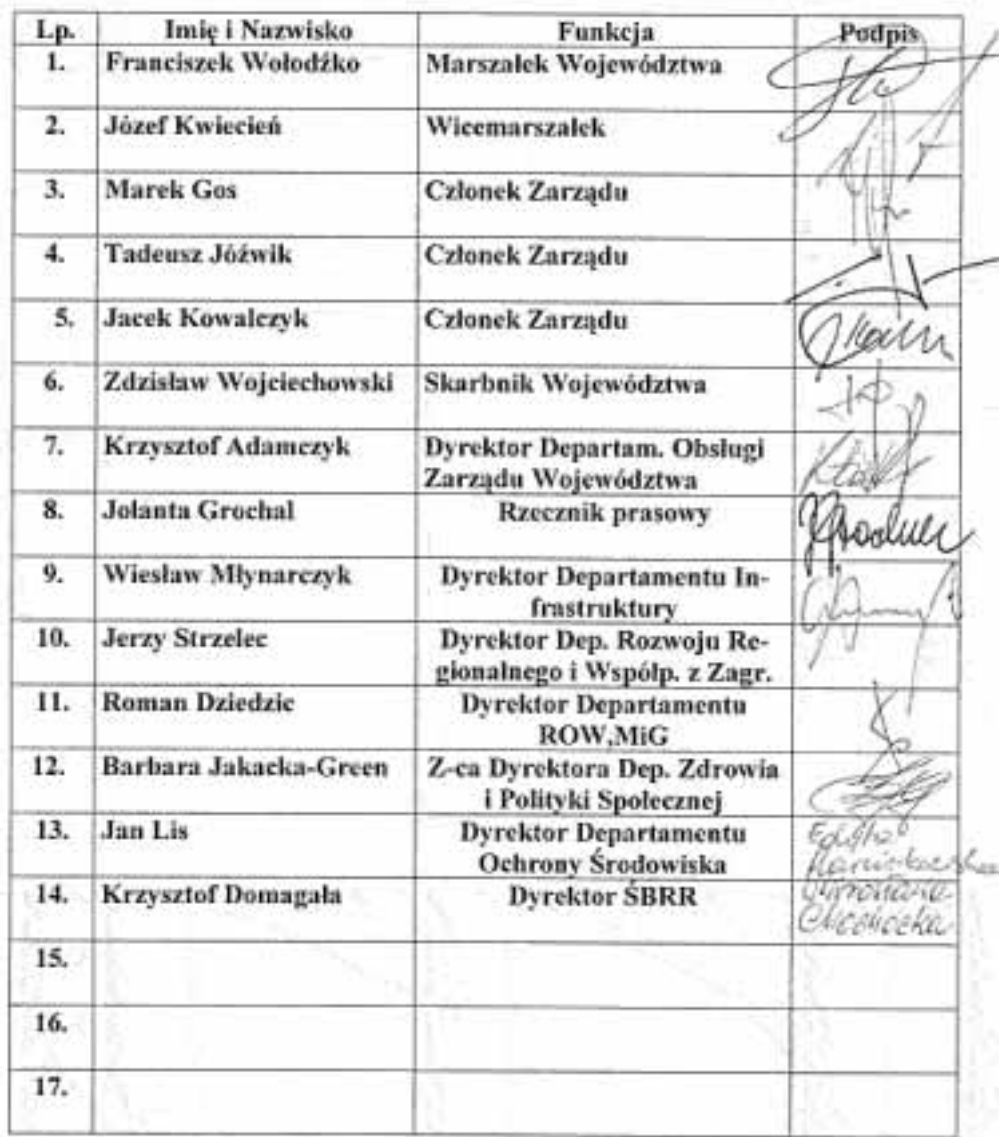 Lp. Imię i Nazwisko Funkcja Podpis
1. Franciszek Wołodźko Marszałek Województwa
2. Józef Kwiecień Wicemarszałek
3. Marek Gos Członek Zarządu
4. Tadeusz Jóźwik Członek Zarządu
5. Jacek Kowalczyk Członek Zarządu
6. Zdzisław Wojciechowski Skarbnik Województwa
7. Krzysztof Adamczyk Dyrektor Departam. Obsługi
Zarządu Województwa
8. Jolanta Grochal Rzecznik prasowy
9. Wiesław Młynarczyk Dyrektor Departamentu In-
frastruktury
10. Jerzy Strzelec Dyrektor Dep. Rozwoju Re-
gionalnego i Współp. z Zagr.
11. Roman Dziedzic Dyrektor Departamentu
ROW,MiG
12. Barbara Jakacka-Green Z-ca Dyrektora Dep. Zdrowia
i Polityki Społecznej
13. Jan Lis Dyrektor Departamentu
Ochrony Środowiska
14. Krzysztof Domagała Dyrektor ŚBRR
15.
16.
17.